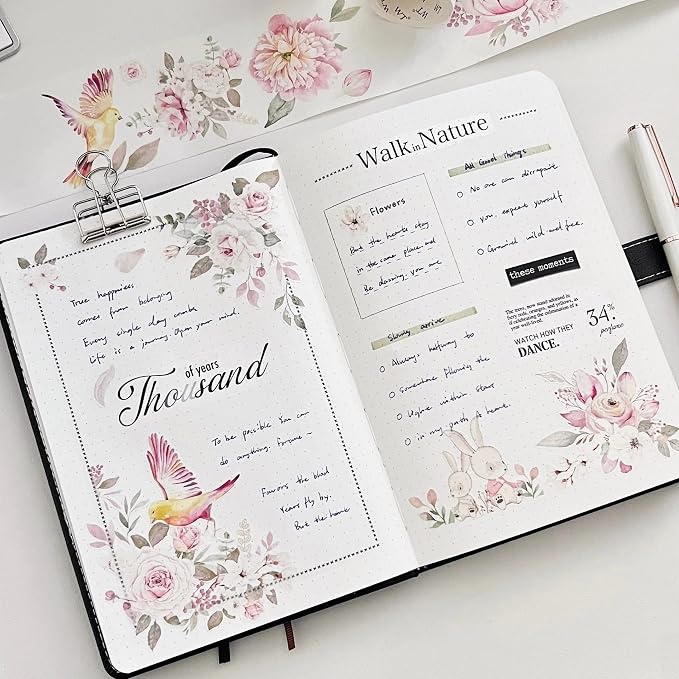 True happiness
comes from belonging
Every single day counts
Life is a journey. Open your mind.
of years
Thousand
To be possible You can
do anything. Fortune ~
Favors the blad
Years fly by.
But the home
Walk in Nature
Flowers
But the hearts stay
in the same place and
Be dawning you are
Slowly arrive
Always halfway to
Somewhere flowing the
Higher within stars
in my path A home.
All Good Things
No one can disrepute
you. expeat yourself
Grownid wild and free.
these moments
The trees, now stand adorned in
fiery reds, oranges, and yellows, as
if celebrating the culmination of a
year well-lived.
WATCH HOW THEY
DANCE.
34%